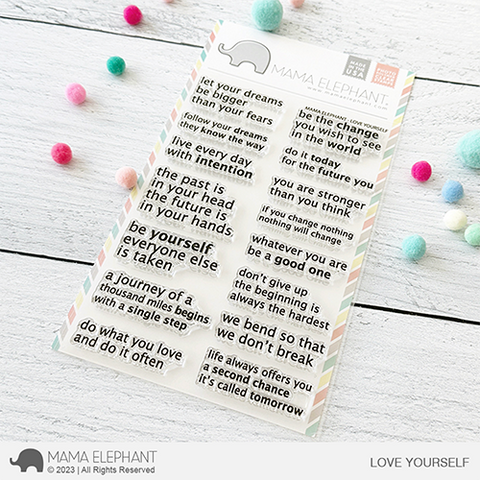 MAMA ELEPHANT
MADE IN THE USA
let your dreams
be bigger
than your fears
follow your dreams
they know the way
live every day
with intention
the past is
in your head
the future is
in your hands
be yourself
everyone else
is taken
a journey of a
thousand miles begins
with a single step
do what you love
and do it often
MAMA ELEPHANT . LOVE YOURSELF
be the change
you wish to see
in the world
do it today
for the future you
you are stronger
than you think
if you change nothing
nothing will change
whatever you are
be a good one
don't give up
the beginning is
always the hardest
we bend so that
we don't break
life always offers you
a second chance
it's called tomorrow
MAMA ELEPHANT
© 2023 | All Rights Reserved
LOVE YOURSELF